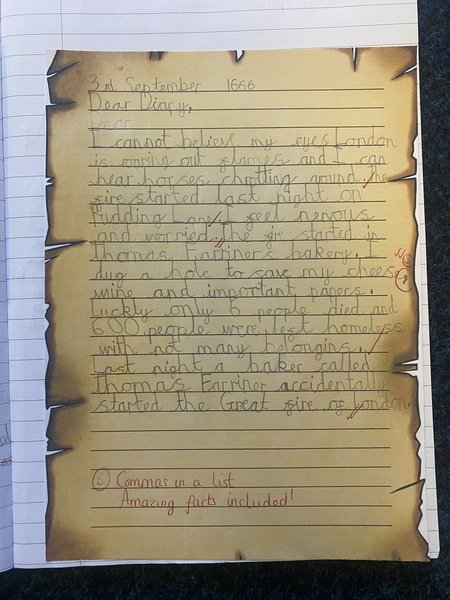 3rd September 1666
Dear Diary,
Dear
I cannot believe my eyes London
is roaring out flames and I can
hear horses chrotting around. The
fire started last night on
Pudding Lane. I feel nervous
and worried. The fire started in
Thomas Farriner's bakery. I
dug a hole to save my cheese
wine and important papers.
Luckly only 6 people died and
600 people were left homeless
with not many belongins.
Last night a baker called
Thomas Farriner accidentally
started the Great fire of London.
i Commas in a list
Amazing facts included!